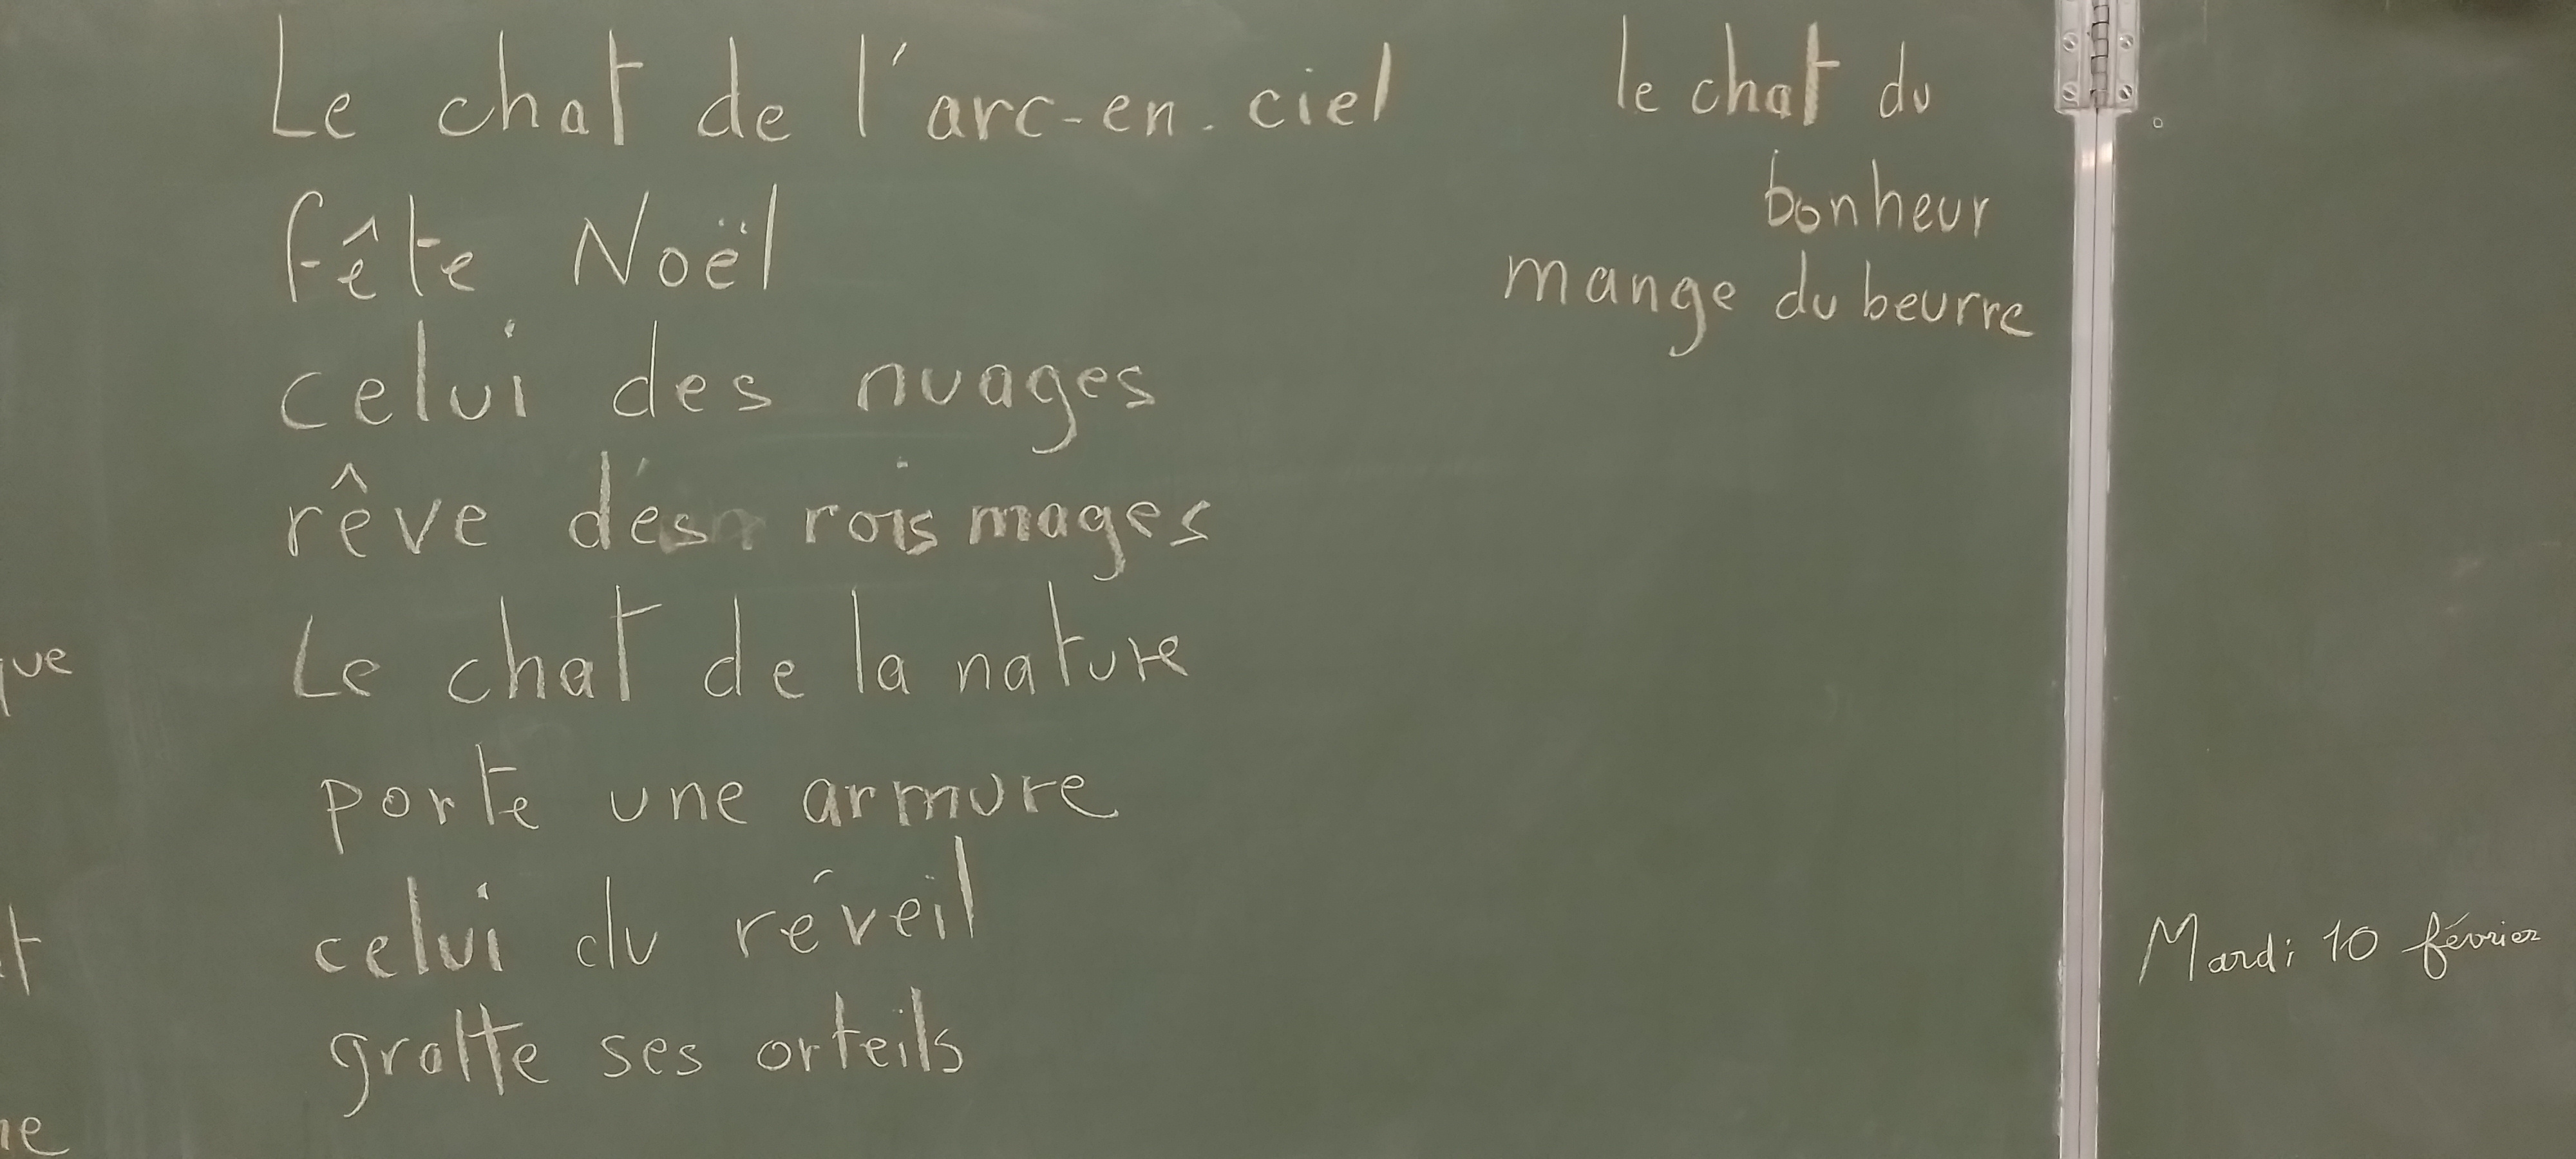 Le chat de l'arc-en-ciel
fête Noël
celui des nuages
rêve des rois mages
Le chat de la nature
porte une armure
celui du réveil
gratte ses orteils
le chat du
bonheur
mange du beurre
Mardi 10 février